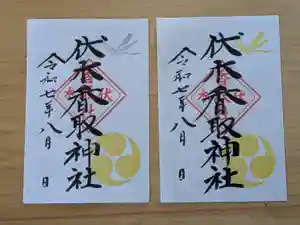 伏木香取神社
令和七年八月 日
伏木香取神社
令和七年八月 日